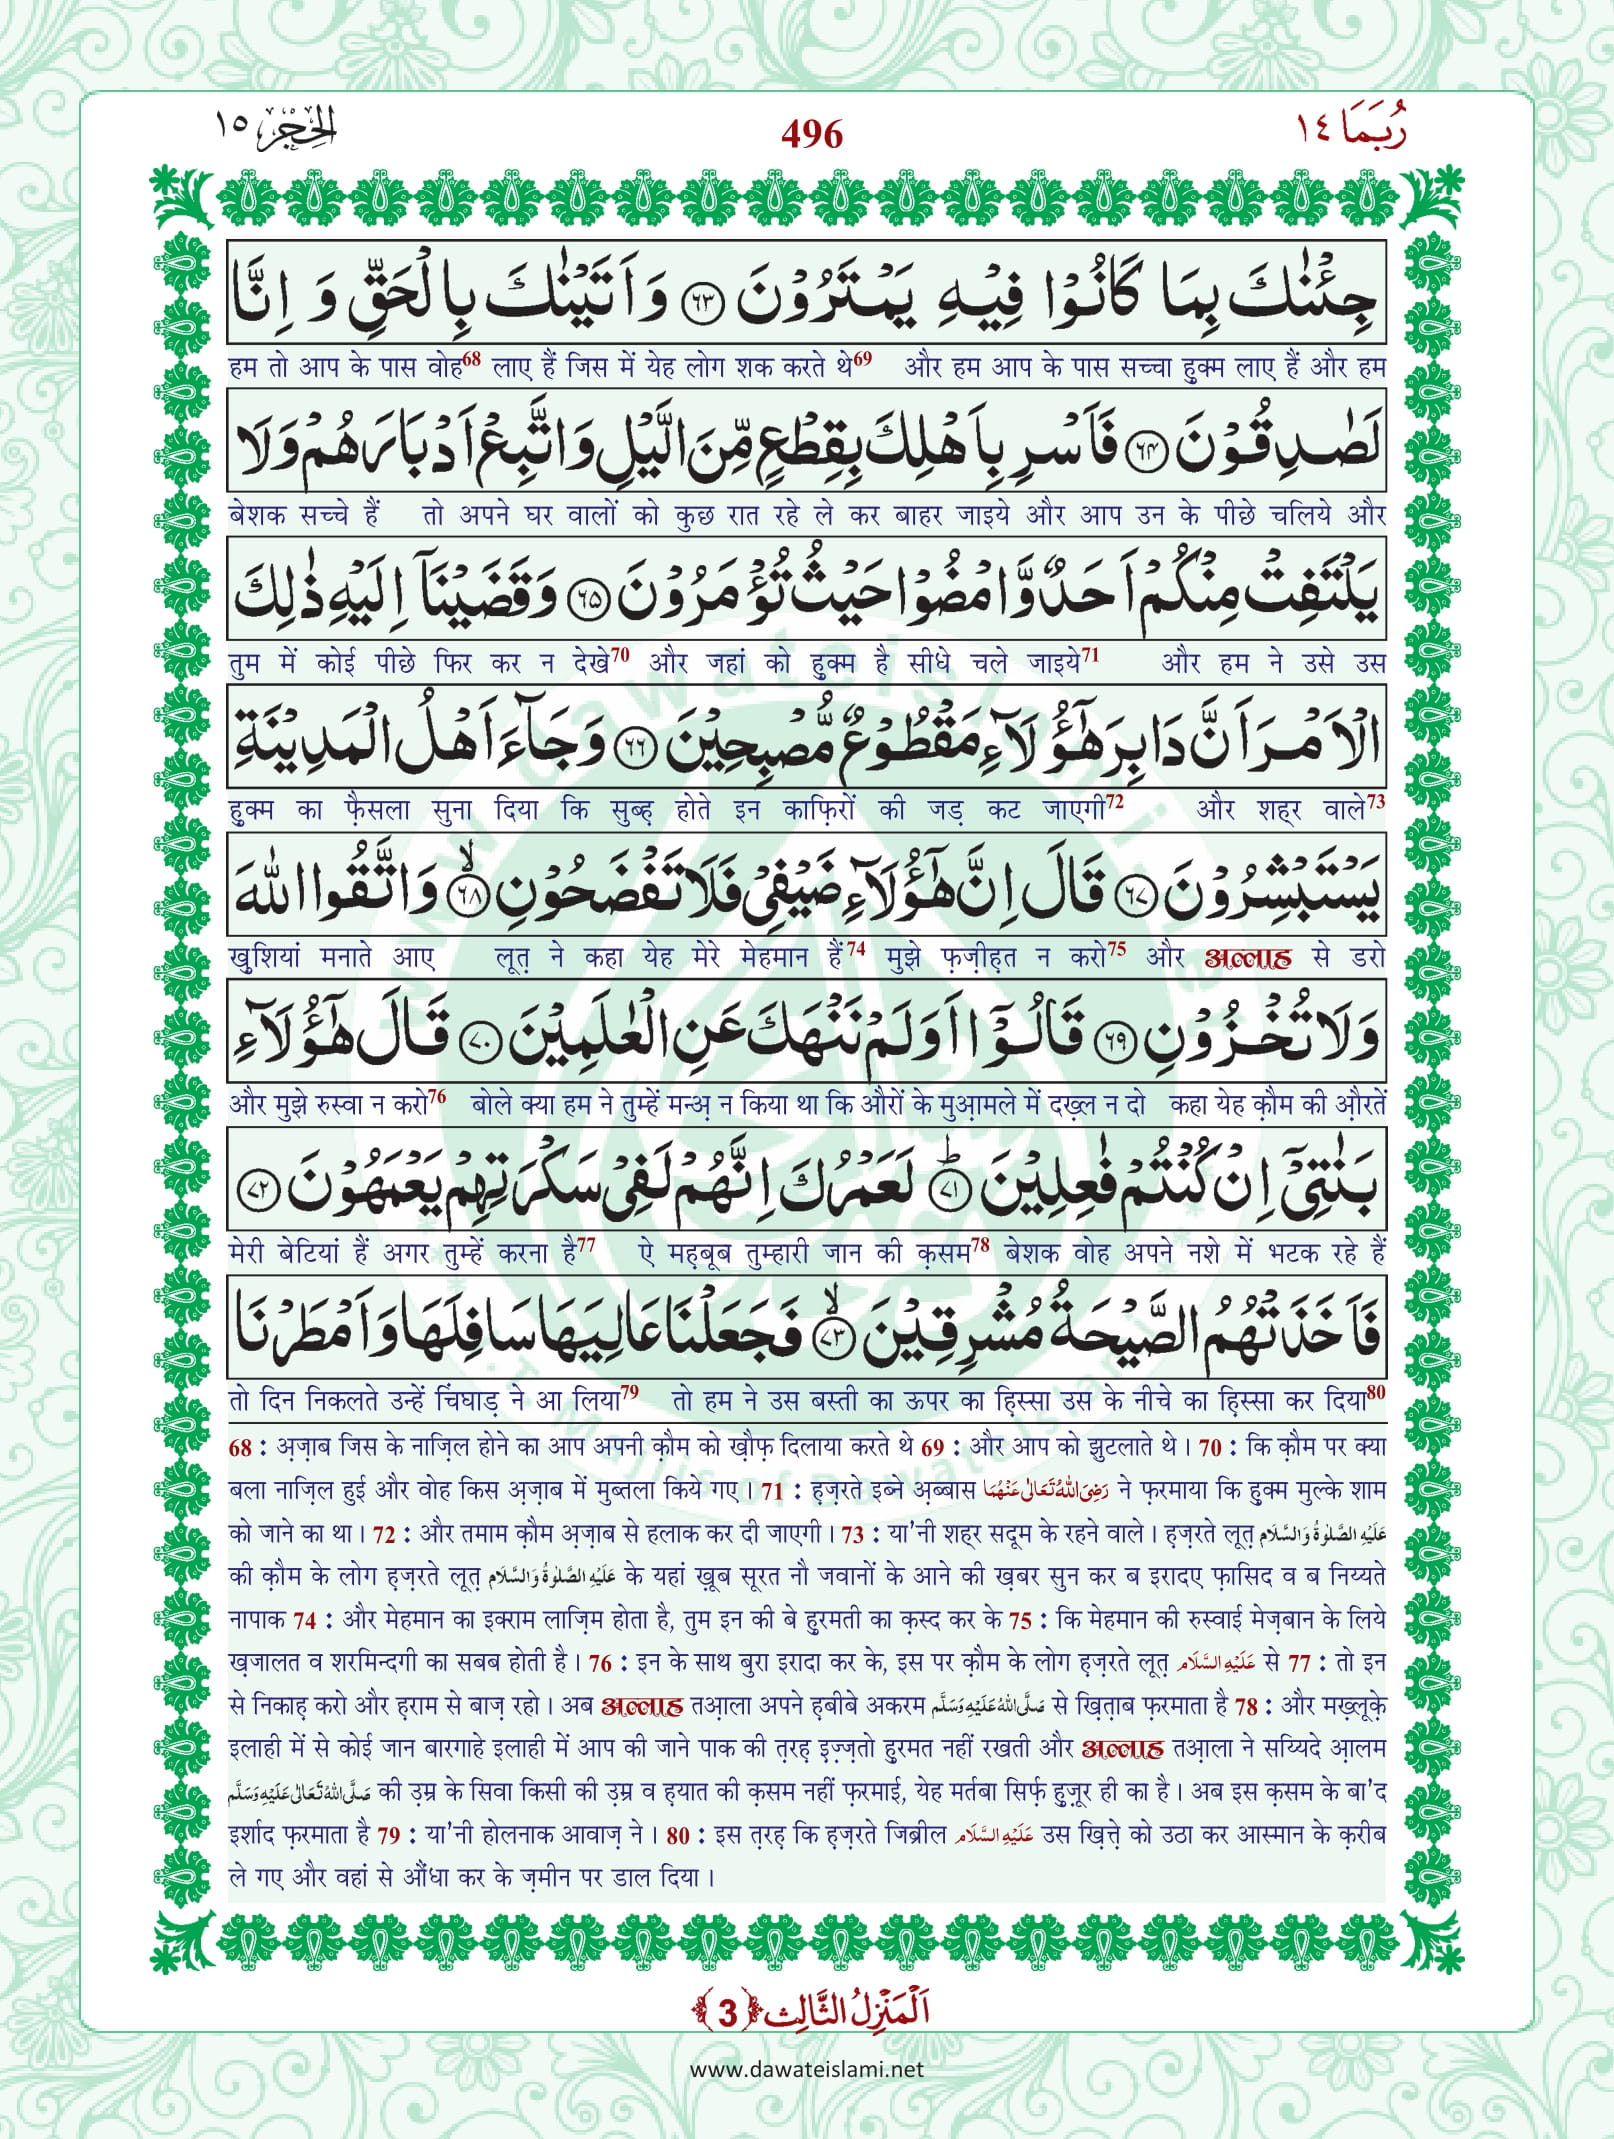 الحجر ١٥
496
رُبَمَا ١٤
جِئْنٰكَ بِمَا كَانُوْا فِيْهِ يَمْتَرُوْنَ ﴿۶۳﴾ وَاَتَيْنٰكَ بِالْحَقِّ وَ اِنَّا
हम तो आप के पास वोह68 लाए हैं जिस में येह लोग शक करते थे69 और हम आप के पास सच्चा हुक्म लाए हैं और हम
لَصٰدِقُوْنَ ﴿۶۴﴾ فَاَسْرِ بِاَهْلِكَ بِقِطْعٍ مِّنَ الَّيْلِ وَاتَّبِعْ اَدْبَارَهُمْ وَلَا
बेशक सच्चे हैं तो अपने घर वालों को कुछ रात रहे ले कर बाहर जाइये और आप उन के पीछे चलिये और
يَلْتَفِتْ مِنْكُمْ اَحَدٌ وَّامْضُوْا حَيْثُ تُؤْمَرُوْنَ ﴿۶۵﴾ وَقَضَيْنَاۤ اِلَيْهِ ذٰلِكَ
तुम में कोई पीछे फिर कर न देखे70 और जहां को हुक्म है सीधे चले जाइये71 और हम ने उसे उस
الْاَمْرَ اَنَّ دَابِرَ هٰۤؤُلَآءِ مَقْطُوْعٌ مُّصْبِحِيْنَ ﴿۶۶﴾ وَجَآءَ اَهْلُ الْمَدِيْنَةِ
हुक्म का फ़ैसला सुना दिया कि सुब्ह़ होते इन काफ़िरों की जड़ कट जाएगी72 और शह्र वाले73
يَسْتَبْشِرُوْنَ ﴿۶۷﴾ قَالَ اِنَّ هٰۤؤُلَآءِ ضَيْفِيْ فَلَا تَفْضَحُوْنِ ﴿۶۸﴾ۙ وَاتَّقُوا اللّٰهَ
खुशियां मनाते आए लूत़ ने कहा येह मेरे मेहमान हैं74 मुझे फ़ज़ीह़त न करो75 और अल्लाह से डरो
وَلَا تُخْزُوْنِ ﴿۶۹﴾ قَالُوْۤا اَوَلَمْ نَنْهَكَ عَنِ الْعٰلَمِيْنَ ﴿۷۰﴾ قَالَ هٰۤؤُلَآءِ
और मुझे रुस्वा न करो76 बोले क्या हम ने तुम्हें मन्अ़ न किया था कि औरों के मुआ़मले में दख़्ल न दो कहा येह क़ौम की औ़रतें
بَنٰتِيْۤ اِنْ كُنْتُمْ فٰعِلِيْنَ ﴿۷۱﴾ؕ لَعَمْرُكَ اِنَّهُمْ لَفِيْ سَكْرَتِهِمْ يَعْمَهُوْنَ ﴿۷۲﴾
मेरी बेटियां हैं अगर तुम्हें करना है77 ऐ मह़बूब तुम्हारी जान की क़सम78 बेशक वोह अपने नशे में भटक रहे हैं
فَاَخَذَتْهُمُ الصَّيْحَةُ مُشْرِقِيْنَ ﴿۷۳﴾ۙ فَجَعَلْنَا عَالِيَهَا سَافِلَهَا وَاَمْطَرْنَا
तो दिन निकलते उन्हें चिंघाड़ ने आ लिया79 तो हम ने उस बस्ती का ऊपर का ह़िस्सा उस के नीचे का ह़िस्सा कर दिया80
68 : अ़ज़ाब जिस के नाज़िल होने का आप अपनी क़ौम को ख़ौफ़ दिलाया करते थे 69 : और आप को झुटलाते थे । 70 : कि क़ौम पर क्या
बला नाज़िल हुई और वोह किस अ़ज़ाब में मुब्तला किये गए । 71 : ह़ज़रते इब्ने अ़ब्बास رَضِیَ اللهُ تَعَالٰی عَنْهُمَا ने फ़रमाया कि हुक्म मुल्के शाम
को जाने का था । 72 : और तमाम क़ौम अ़ज़ाब से हलाक कर दी जाएगी । 73 : या'नी शह्र सदूम के रहने वाले । ह़ज़रते लूत़ عَلَيْهِ الصَّلٰوةُ وَالسَّلَام
की क़ौम के लोग ह़ज़रते लूत़ عَلَيْهِ الصَّلٰوةُ وَالسَّلَام के यहां ख़ूब सूरत नौ जवानों के आने की ख़बर सुन कर ब इरादए फ़ासिद व ब निय्यते
नापाक 74 : और मेहमान का इक्राम लाज़िम होता है, तुम इन की बे हुरमती का क़स्द कर के 75 : कि मेहमान की रुस्वाई मेज़बान के लिये
ख़जालत व शरमिन्दगी का सबब होती है । 76 : इन के साथ बुरा इरादा कर के, इस पर क़ौम के लोग ह़ज़रते लूत़ عَلَيْهِ السَّلَام से 77 : तो इन
से निकाह़ करो और ह़राम से बाज़ रहो । अब अल्लाह तआ़ला अपने ह़बीबे अकरम صَلَّى اللهُ عَلَيْهِ وَسَلَّم से ख़ित़ाब फ़रमाता है 78 : और मख़्लूक़े
इलाही में से कोई जान बारगाहे इलाही में आप की जाने पाक की त़रह़ इ़ज़्ज़तो हुरमत नहीं रखती और अल्लाह तआ़ला ने सय्यिदे आ़लम
صَلَّى اللهُ تَعَالٰی عَلَيْهِ وَسَلَّم की उ़म्र के सिवा किसी की उ़म्र व ह़यात की क़सम नहीं फ़रमाई, येह मर्तबा सिर्फ़ हुज़ूर ही का है । अब इस क़सम के बा'द
इर्शाद फ़रमाता है 79 : या'नी होलनाक आवाज़ ने । 80 : इस त़रह़ कि ह़ज़रते जिब्रील عَلَيْهِ السَّلَام उस ख़ित़्त़े को उठा कर आस्मान के क़रीब
ले गए और वहां से औंधा कर के ज़मीन पर डाल दिया ।
اَلْمَنْزِلُ الثَّالِث ﴿3﴾
www.dawateislami.net